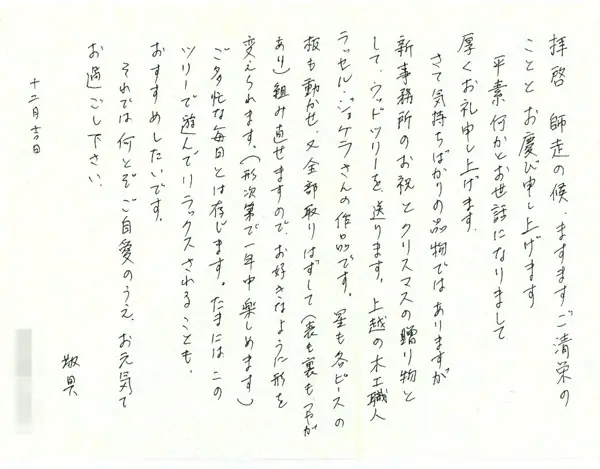 拝啓 師走の候、ますますご清栄の
ことと お慶び申し上げます
平素 何かとお世話になりまして
厚くお礼申し上げます。
さて気持ちばかりの品物ではありますが
新事務所のお祝とクリスマスの贈り物と
して、ウッドツリーを、送ります。上越の木工職人
ラッセル・ジョケラさんの作品です。 星も各ピースの
板も動かせ、又全部取りはずして(表も裏も 穴が
あり)組み直せますので、お好きなように形を
変えられます。(形次第で一年中楽しめます)
ご多忙な毎日とは存じます。たまには、この
ツリーで遊んでリラックスされることも、
おすすめしたいです。
それでは何とぞご自愛のうえ、お元気で
お過ごし下さい。
敬具
十二月吉日